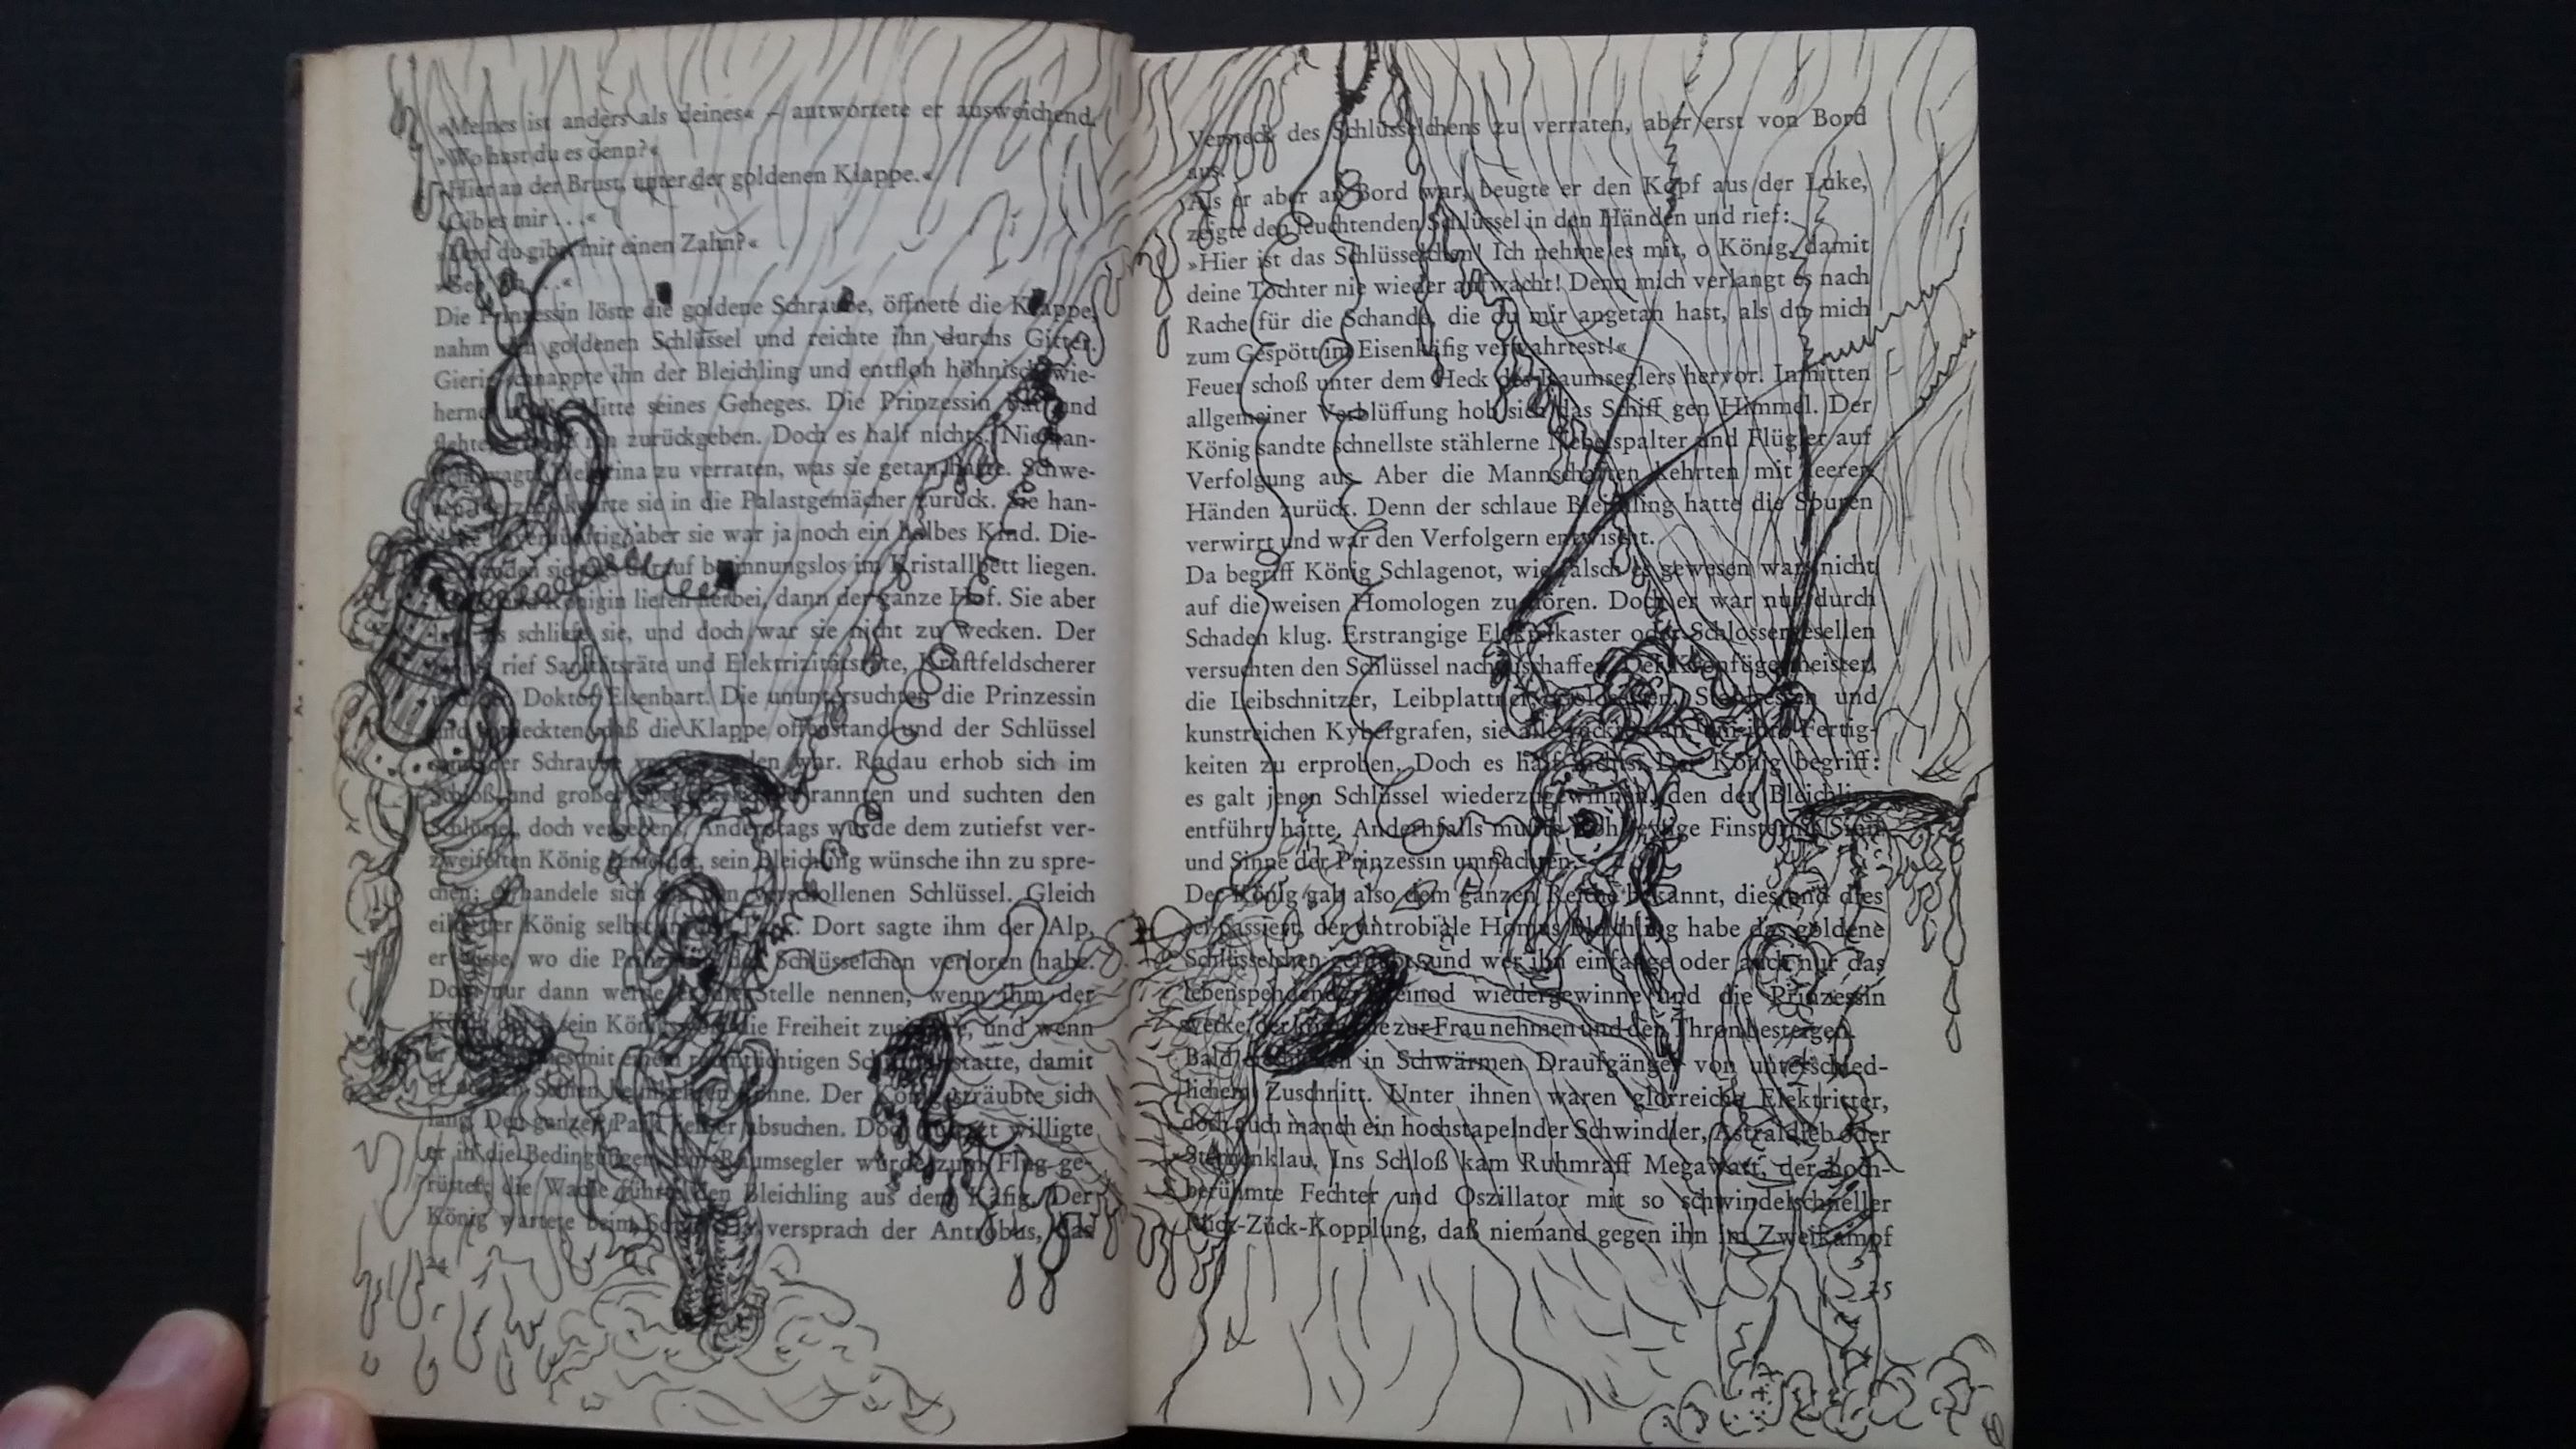 »Meines ist anders als deines« – antwortete er ausweichend.
»Wo hast du es denn?«
»Hier an der Brust, unter der goldenen Klappe.«
»Gib es mir . . .«
»Und du gibst mir einen Zahn?«
Die Prinzessin löste die goldene Schraube, öffnete die Klappe,
nahm den goldenen Schlüssel und reichte ihn durchs Gitter.
Gierig schnappte ihn der Bleichling und entfloh höhnisch wie-
hernd Mitte seines Geheges. Die Prinzessin bat und
flehte zurückgeben. Doch es half nichts. Nieman-
zu verraten, was sie getan hatte. Schwe-
kehrte sie in die Palastgemächer zurück. Sie han-
aber sie war ja noch ein halbes Kind. Die-
darauf besinnungslos im Kristallbett liegen.
Königin liefen herbei, dann der ganze Hof. Sie aber
schlief sie, und doch war sie nicht zu wecken. Der
rief Sanitätsräte und Elektrizitätsräte, Kraftfeldscherer
Doktor Eisenbart. Die ununtersuchten die Prinzessin
und entdeckten, daß die Klappe offenstand und der Schlüssel
der Schraube verschwunden war. Radau erhob sich im
Schloß und großer rannten und suchten den
Schlüssel, doch vergebens. Anderntags wurde dem zutiefst ver-
zweifelten König gemeldet, sein Bleichling wünsche ihn zu spre-
chen; es handele sich um den verschollenen Schlüssel. Gleich
eilte der König selbst in den Park. Dort sagte ihm der Alp,
er wisse, wo die Prinzessin das Schlüsselchen verloren habe.
Doch nur dann werde er die Stelle nennen, wenn ihm der
König sein Königswort die Freiheit zusichere, und wenn
er ihn mit einem raumtüchtigen Schiff ausstatte, damit
er zu den Seinen heimkehren könne. Der König sträubte sich
lang. Den ganzen Park ließ er absuchen. Doch zuletzt willigte
er in die Bedingungen. Ein Raumsegler wurde zum Flug ge-
rüstet, die Wache führte den Bleichling aus dem Käfig. Der
König wartete beim Schiff. Da versprach der Antrobus, das
24
Versteck des Schlüsselchens zu verraten, aber erst von Bord
aus.
Als er aber an Bord war, beugte er den Kopf aus der Luke,
zeigte den leuchtenden Schlüssel in den Händen und rief:
»Hier ist das Schlüsselchen! Ich nehme es mit, o König, damit
deine Tochter nie wieder aufwacht! Denn mich verlangt es nach
Rache für die Schande, die du mir angetan hast, als du mich
zum Gespött im Eisenkäfig verwahrtest!«
Feuer schoß unter dem Heck des Raumseglers hervor. Inmitten
allgemeiner Verblüffung hob sich das Schiff gen Himmel. Der
König sandte schnellste stählerne Nebelspalter und Flügler auf
Verfolgung aus. Aber die Mannschaften kehrten mit leeren
Händen zurück. Denn der schlaue Bleichling hatte die Spuren
verwirrt und war den Verfolgern entwischt.
Da begriff König Schlagenot, wie falsch es gewesen war, nicht
auf die weisen Homologen zu hören. Doch er war nur durch
Schaden klug. Erstrangige Elektrikaster oder Schlossergesellen
versuchten den Schlüssel nachzuschaffen. Der Kronfügermeister,
die Leibschnitzer, Leibplattner, und
kunstreichen Kybergrafen, sie alle rückten an, um ihre Fertig-
keiten zu erproben. Doch es half nichts. Der König begriff:
es galt jenen Schlüssel wiederzugewinnen, den der Bleichling
entführt hatte. Andernfalls mußte Finsternis Sinn
und Sinne der Prinzessin umnachten.
Der König gab also dem ganzen Reiche bekannt, dies und dies
sei passiert, der antrobiale Homus Bleichling habe das goldene
Schlüsselchen geraubt, und wer ihn einfange oder auch nur das
lebenspendende Kleinod wiedergewinne und die Prinzessin
wecke, der könne sie zur Frau nehmen und den Thron besteigen.
Bald erschienen in Schwärmen Draufgänger von unterschied-
lichem Zuschnitt. Unter ihnen waren glorreiche Elektritter,
doch auch manch ein hochstapelnder Schwindler, Astraldieb oder
Sternenklau. Ins Schloß kam Ruhmraff Megawatt, der hoch-
berühmte Fechter und Oszillator mit so schwindelschneller
Rück-Zück-Kopplung, daß niemand gegen ihn im Zweikampf
25